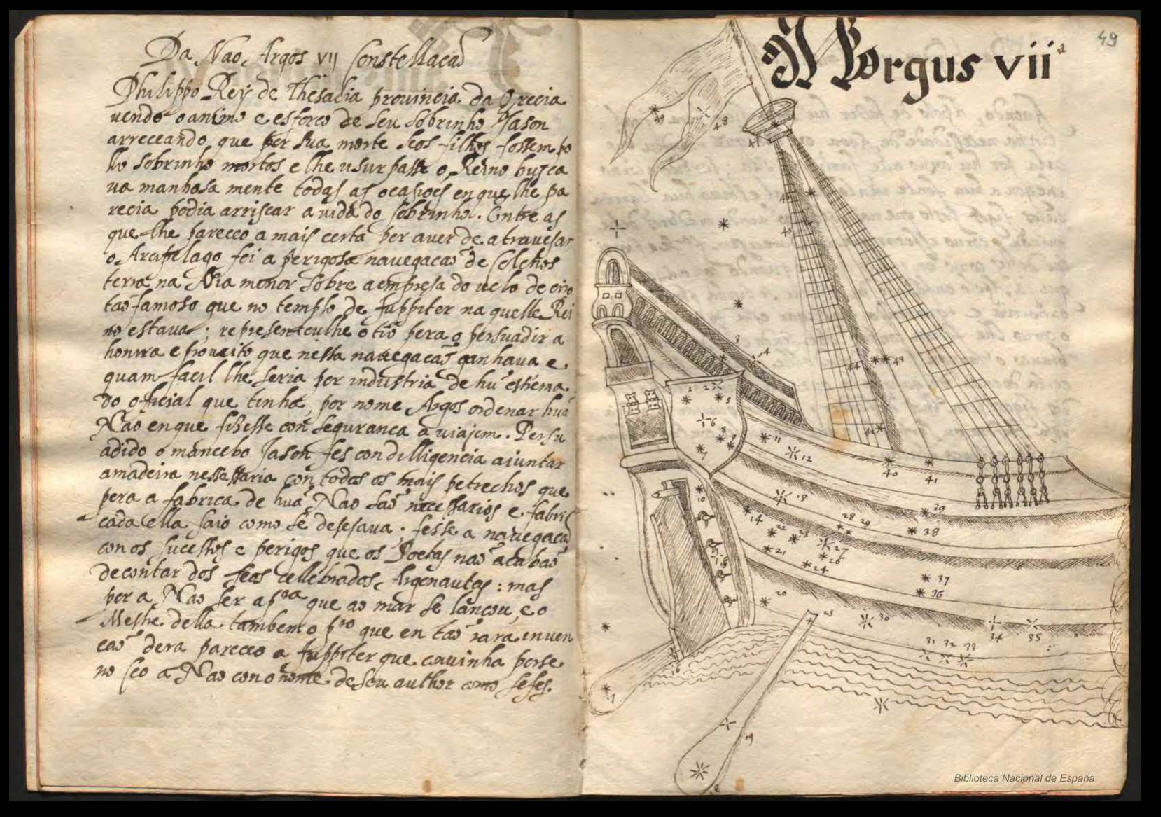 Da Nao Argos VII Constellaçaõ
Philippo Rey de Thesadia provincia da Grecia
vendo o animo e esforço de seu sobrinho Jason
arreceando, que per sua morte seos filhos fossem to
llo sobrinho mortos e lhe usurpasse o Reino busca
va manhosa mente todas as ocasioẽs en que lhe pa
recia podia arriscar a vida do sobrinho. Entre as
que lhe pareceo a mais certa per aver de atravesar
o Arcipelago foi a perigosa navegacaõ de Colchos
terra na Asia menor sobre a empresa do velo de oro
taõ famoso que no templo de Juppiter naquelle Rei
no estava; representoulhe o tio pera o persuadir a
honrra e proveito que nesta navegacaõ ganhava e
quam facil lhe seria por industria de hũ estima
do official que tinha, por nome Argos ordenar huã
Nao en que fisesse con seguranca a viajem. Persu
adido o mancebo Jason fes con dilligencia aiuntar
a madeira nessessaria con todos os mais petrechos que
pera a fabrica de huã Nao saõ necessarios e fabri
cada ella saio como se desejava. fesse a navegacaõ
con os sucessos e perigos que os Poetas naõ acabaõ
de contar dos seos cellebrados Argonautas: mas
por a Nao ser a pra que ao mar se lançou, e o
Mestre della tambem o pro que en taõ rara enven
caõ dera pareceo a Juppiter que convinha porse
no ceo a Nao con o nome de seu author como se fes.
49
N Λorgus vii
48
47
44
43
40
41
12
11
18
14
29
28
28 29
27
26
21
24
37
36
20
30
34
35
31 32 33
Biblioteca Nacional de España